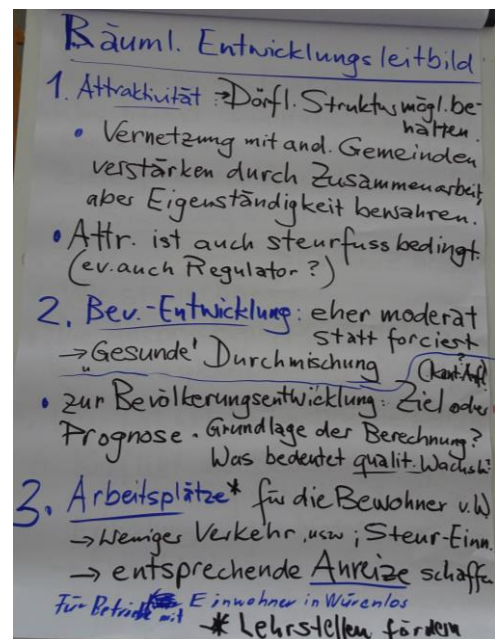 Räuml. Entwicklungsleitbild
1. Attraktivität: → Dörfl. Struktur mögl. be-
halten.
• Vernetzung mit and. Gemeinden
verstärken durch Zusammenarbeit,
aber Eigenständigkeit bewahren.
• Attr. ist auch steurfussbedingt.
(ev. auch Regulator?)
2. Bev.-Entwicklung: eher moderat
statt forciert
→ „Gesunde' Durchmischung
(kant. Anf.
• zur Bevölkerungsentwicklung: Ziel oder
Prognose. Grundlage der Berechnung?
Was bedeutet qualit. Wachst.
3. Arbeitsplätze* für die Bewohner v. W
→ Weniger Verkehr, usw; Steur-Einn.
→ entsprechende Anreize schaffen
Für Betriebe mit Einwohner in Würenlos
* Lehrstellen fördern